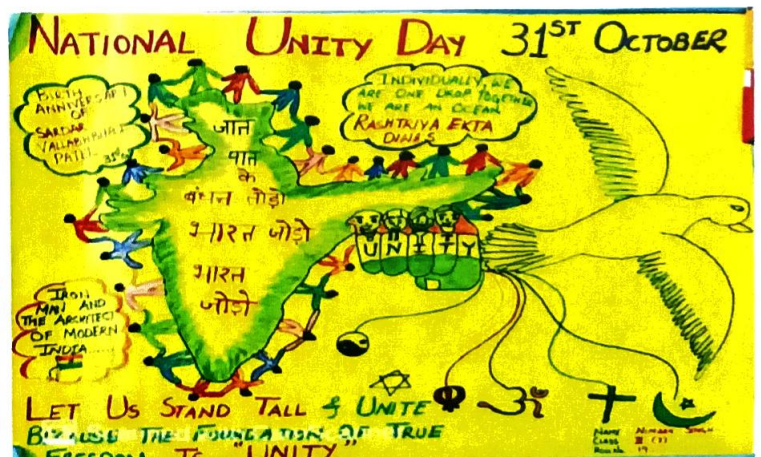 NATIONAL UNITY DAY 31ST OCTOBER
BIRTH
ANNIVERSARY
OF
SARDAR
VALLABHBHAI
PATEL
INDIVIDUALLY, WE
ARE ONE DROP TOGETHER
WE ARE AN OCEAN
RASHTRIYA EKTA
DIWAS
जात
पात
के
बंधन तोड़ो
भारत जोड़ो
भारत
जोड़ो
UNITY
IRON
MAN AND
THE ARCHITECT
OF MODERN
INDIA.....
ॐ
LET US STAND TALL & UNITE
BECAUSE THE FOUNDATION OF TRUE
FREEDOM IS "UNITY"
NAME
CLASS
ROLL NO. 19